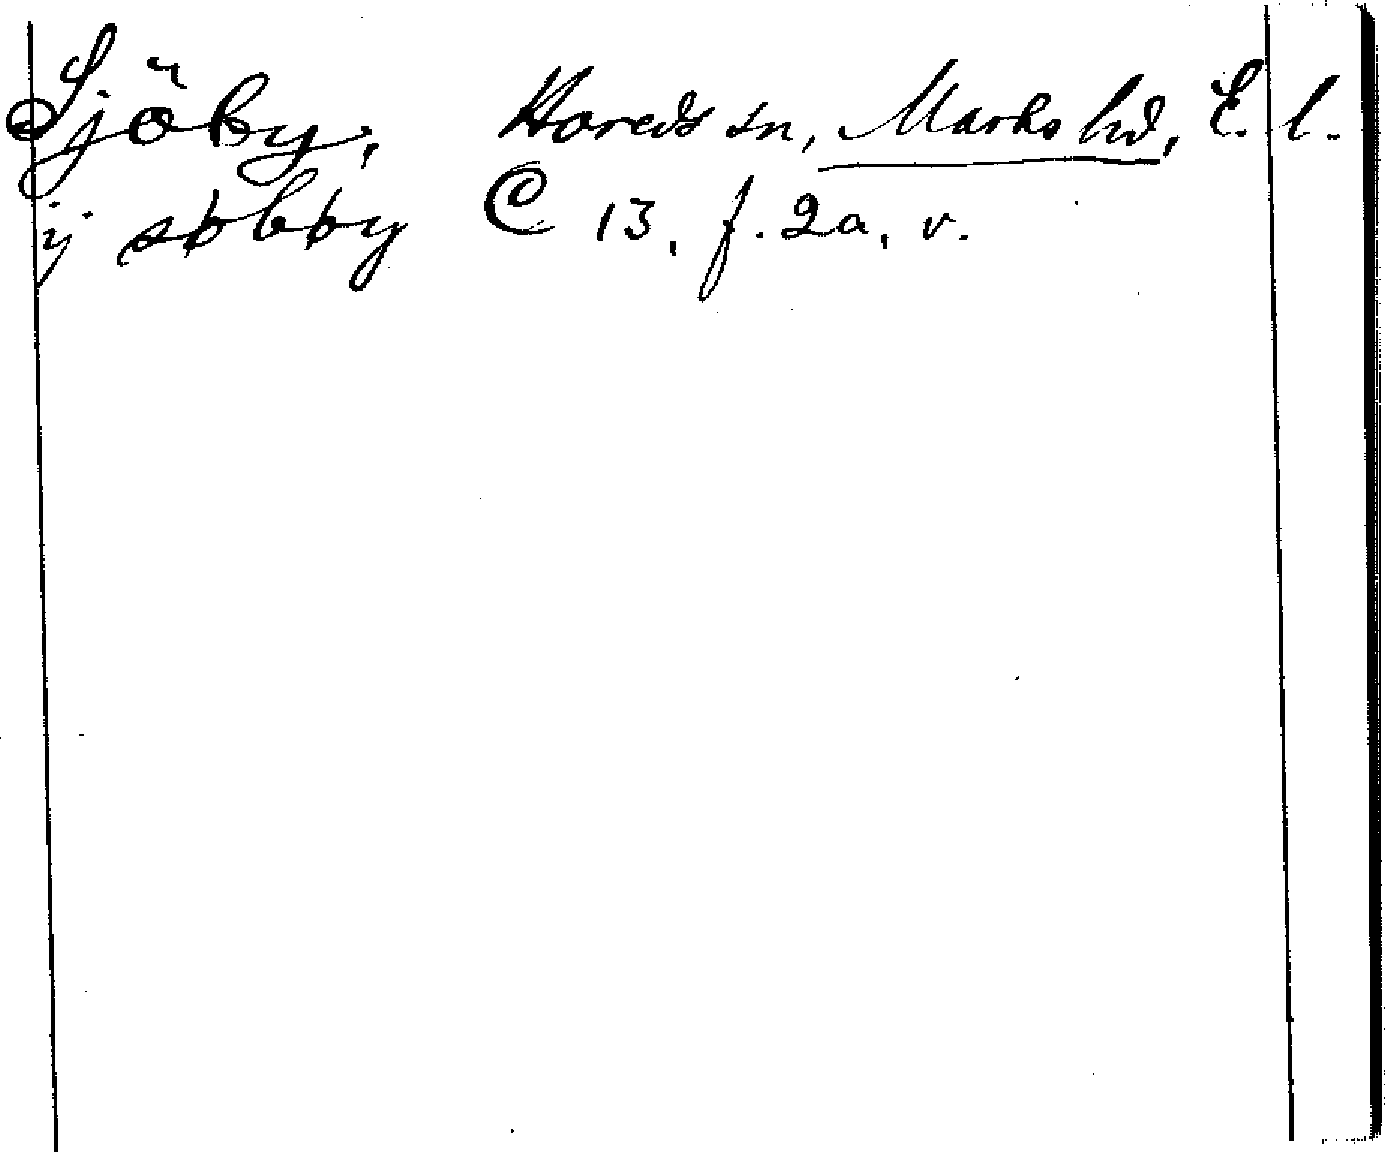 Sjöby, Horeds sn, Marks hd, E. l.
ij søbøy C 13, f. 2a, v.